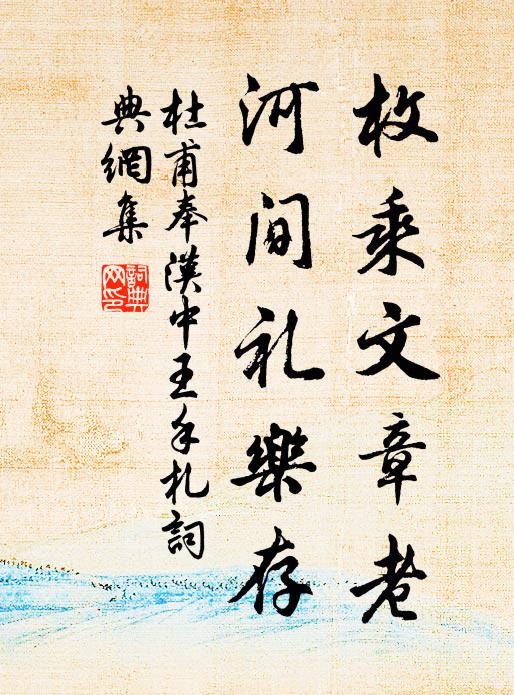 枚乘文章老
河间礼樂存
杜甫奉漢中王手札詞
典網集
詞典網印